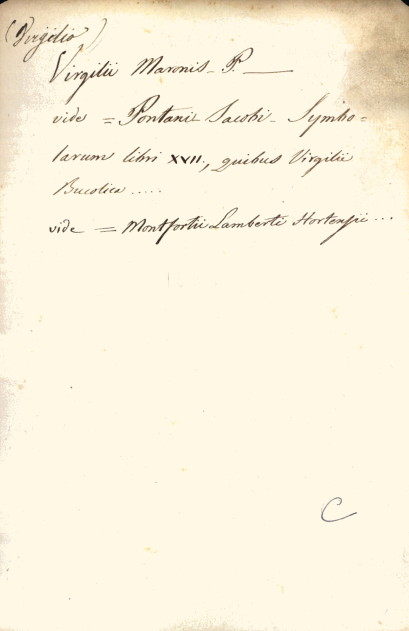 (Virgilio)
Virgilii Maronis - P. —
vide = Pontani Jacobi - Symbo=
larum libri XVII., quibus Virgilii
Bucolica .....
vide = Montfortii Lamberti Hortensii ...
C